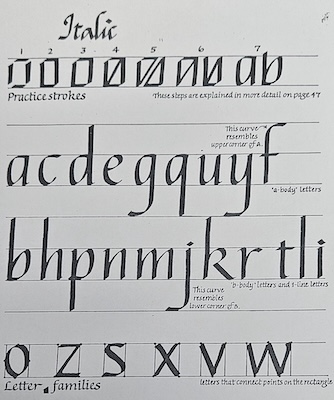 Italic
1 2 3 4 5 6 7
ab
Practice strokes
These steps are explained in more detail on page 47
This curve
resembles
upper corner of a.
acdegquyf
'a-body' letters
bhpnmjkr tli
This curve
resembles
lower corner of b.
'b-body' letters and 1-line letters
O Z S X V W
Letter families
letters that connect points on the rectangle